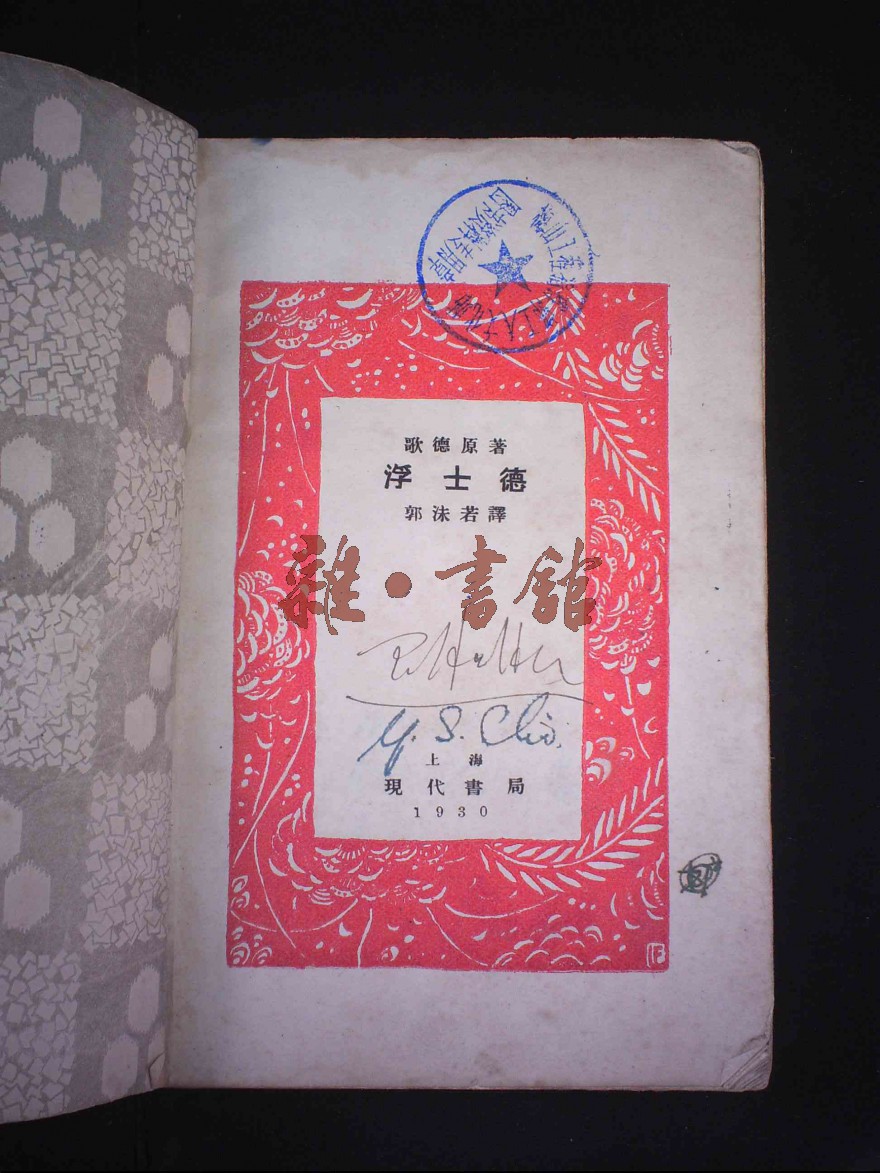 歌德原著
浮士德
郭沫若譯
雜·書館
Y. S. Chiò.
上海
現代書局
1930